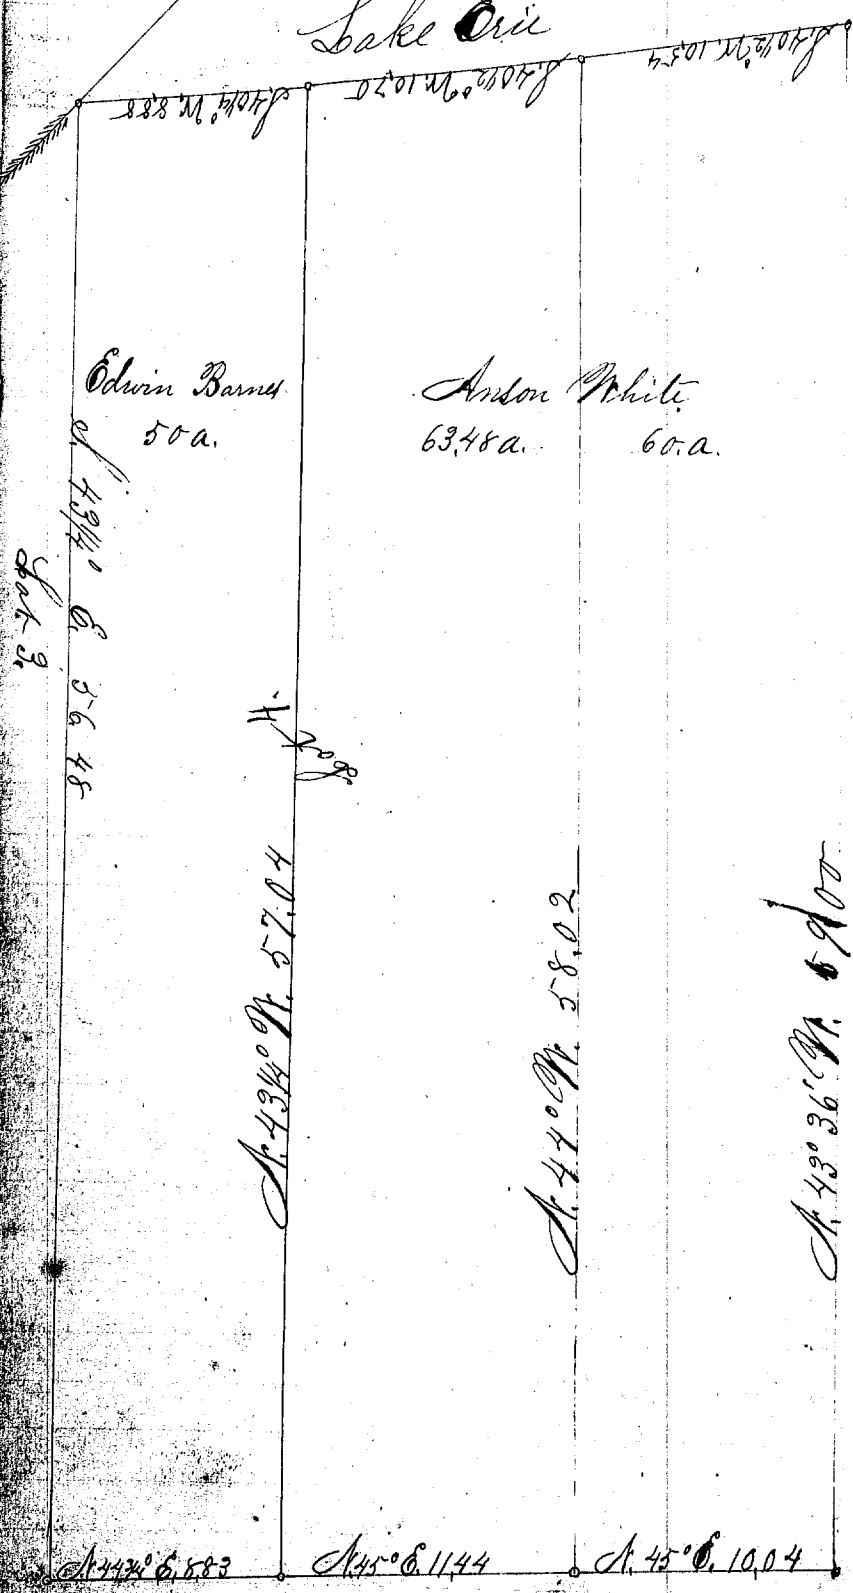 Lake Erie
S. 40 1/4° W. 8,88
S. 40 1/2° W. 10,70
S. 40 1/2° W. 10,54
Edwin Barnes
50 a.
Anson White
63,48 a.
60. a.
S. 43 1/4° E. 56 48
Lot 3.
Lot 4.
N. 43 1/4° W. 57,04
N. 44° W. 58,02
N. 43° 36' W. 59,00
N. 44 3/4° E. 8,83
N. 45° E. 11,44
N. 45° E. 10,04